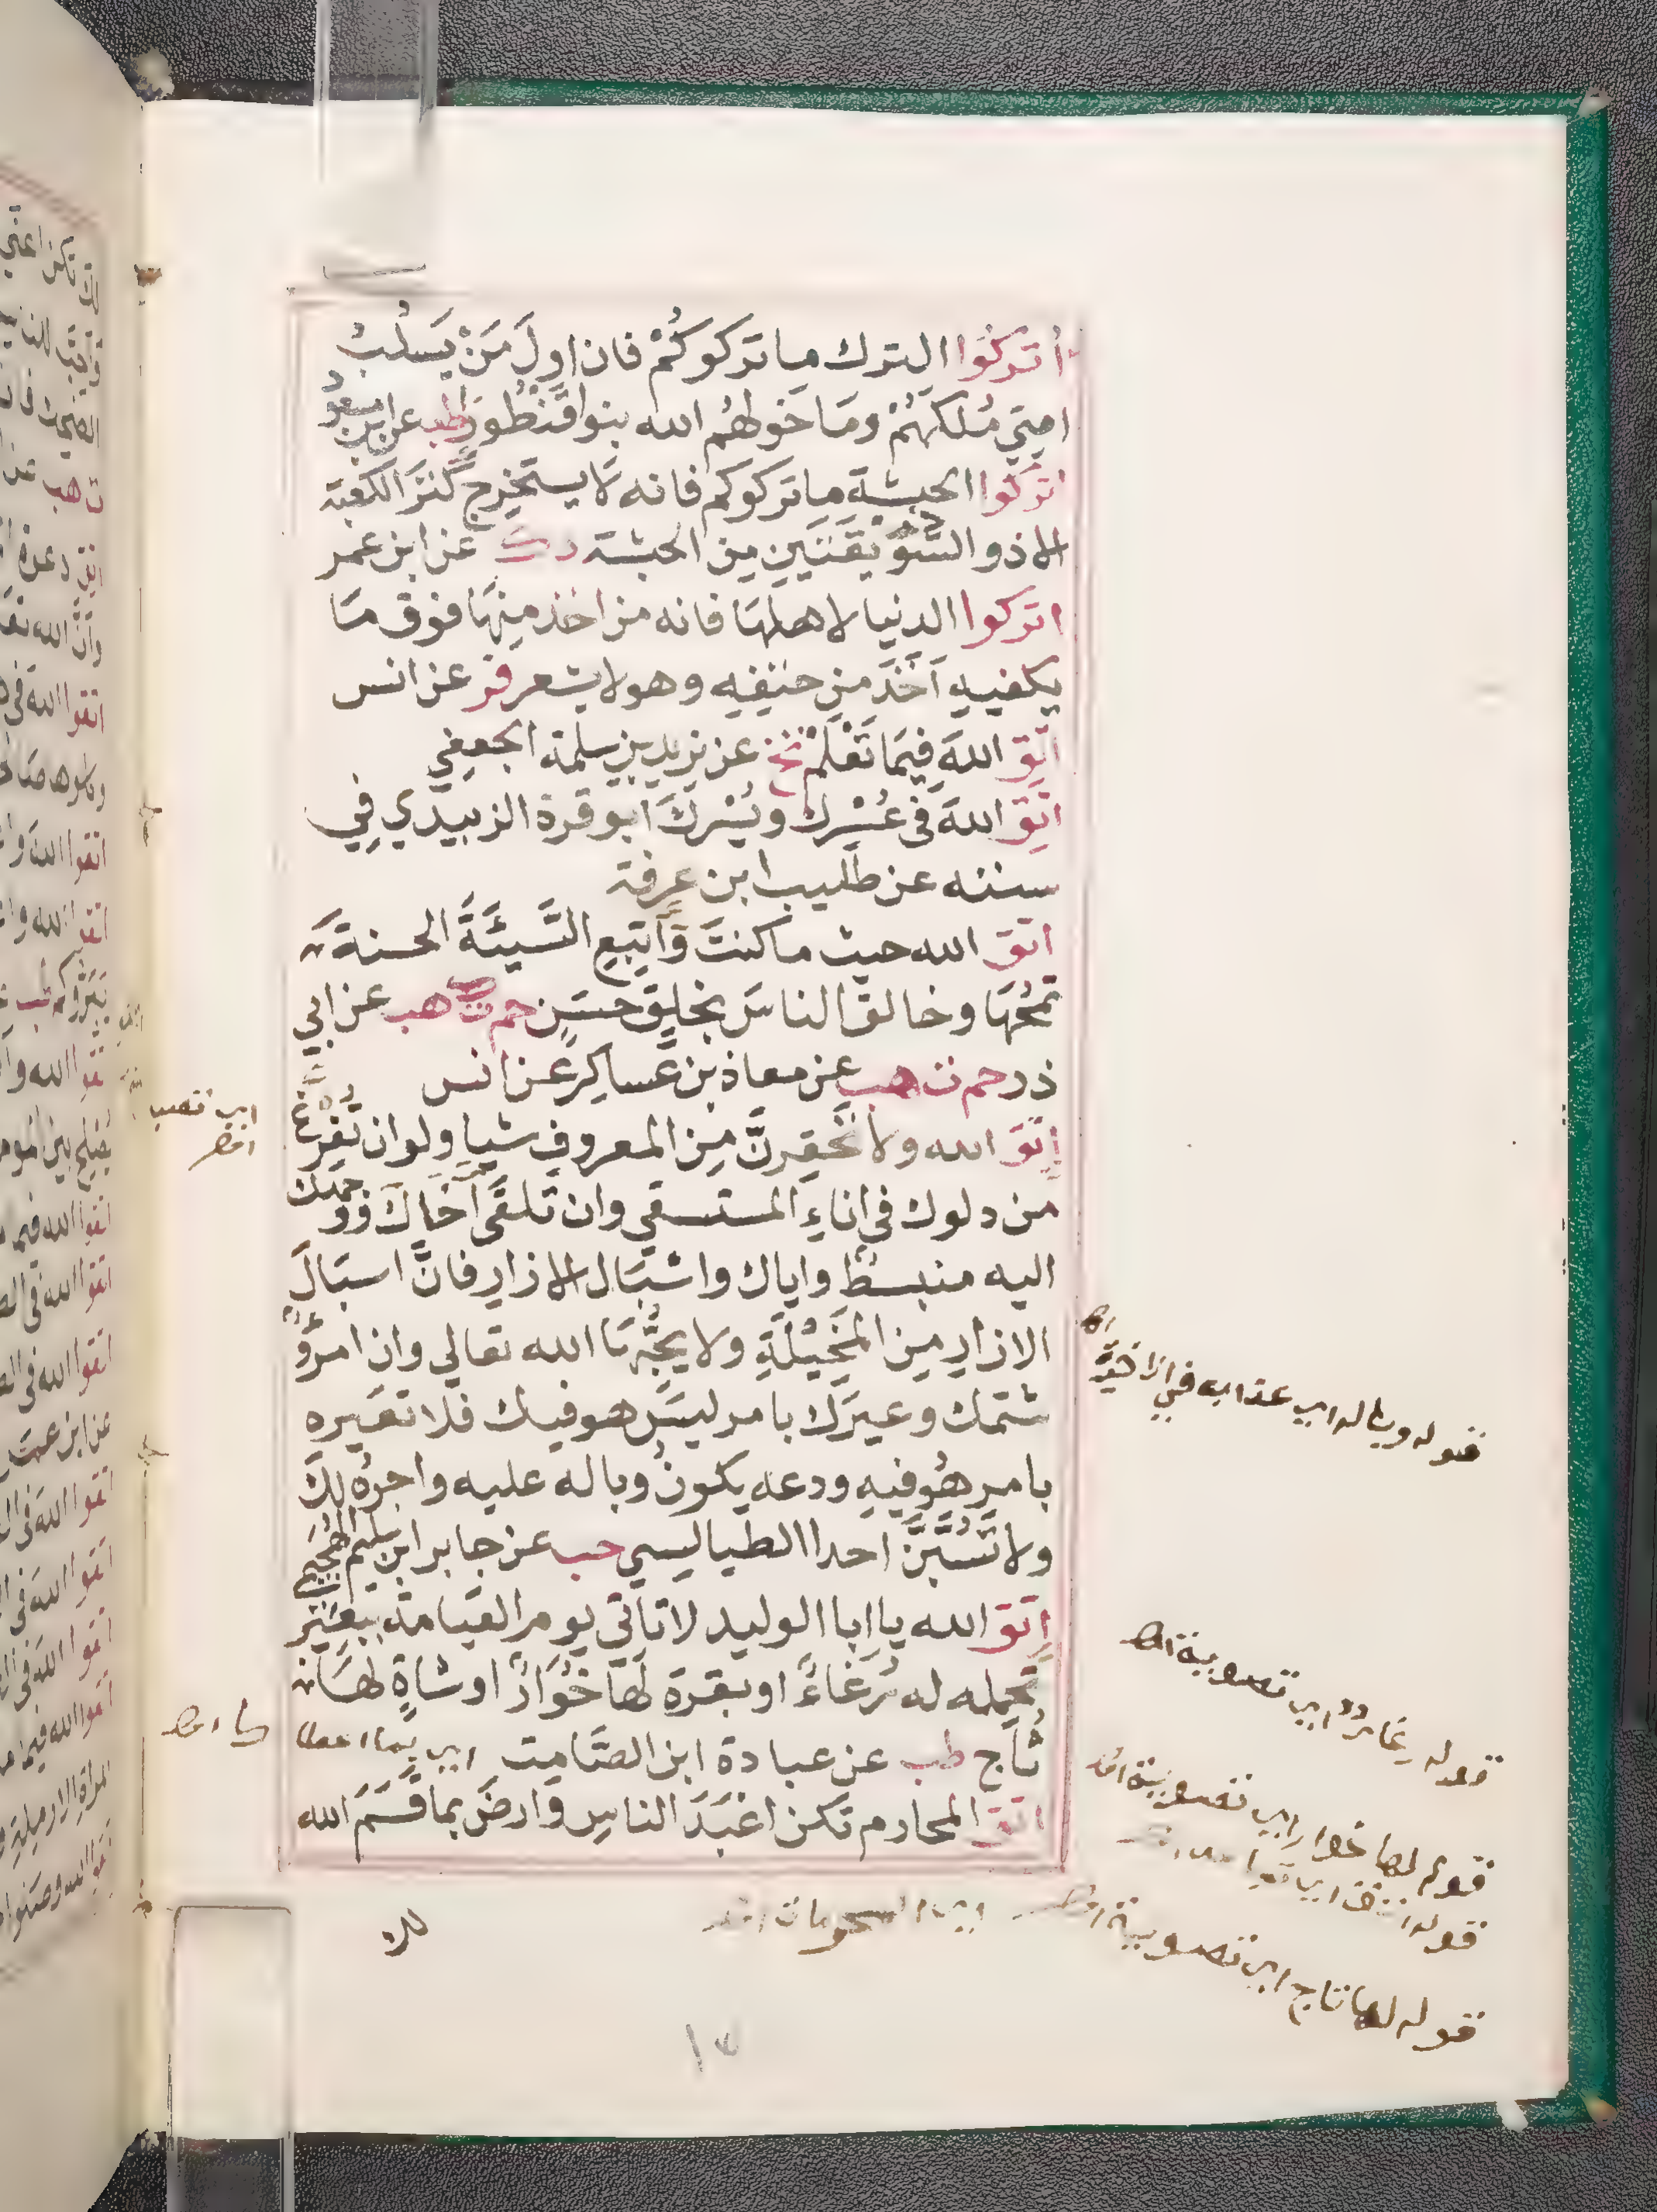 أتركوا الترك ما تركوكم فان اول من يسلب
امتي ملكهم وما خولهم الله بنوا قنطورا طب عن ابن مسعود
اتركوا الحبشة ما تركوكم فانه لا يستخرج كنز الكعبة
الا ذو السويقتين من الحبشة دك عن ابن عمر
اتركوا الدنيا لاهلها فانه من اخذ منها فوق ما
يكفيه اخذ من حتفه وهو لا يشعر فر عن انس
اتق الله فيما تعلم تخ عن يزيد بن سلمة الجعفي
اتق الله في عسرك ويسرك ابو قرة الزبيدي في
سننه عن طليب ابن عرفة
اتق الله حيث ما كنت وأتبع السيئة الحسنة
تمحها وخالق الناس بخلق حسن حم ت ك هب عن ابي
ذر حم ت هب عن معاذ بن عساكر عن انس
إتق الله ولا تحقرن من المعروف شيا ولو ان تفرغ
من دلوك في اناء المستسقي وان تلقى اخاك ووجهك
اليه منبسط واياك واسبال الازار فان اسبال
الازار من المخيلة ولا يحبها الله تعالي وان امرؤ
شتمك وعيرك بامر ليس هو فيك فلا تعيره
بامر هو فيه ودعه يكون وباله عليه واجره لك
ولا تسبن احدا الطيالسي حب عن جابر ابن سليم الهجيمي
إتق الله يا ابا الوليد لا تاتي يوم القيامة ببعير
تحمله له رغاء او بقرة لها خوار او شاة لها
ثأج طب عن عبادة ابن الصامت اي بما اعطا
اتق المحارم تكن اعبد الناس وارض بما قسم الله
لك
اي تصب
قوله وباله اي عذابه في الاخرة اه
قوله رغاء اي تصويتة اه
قوله لها خوار اي تصويتة اه
قوله لها ثاج اي تصويتة اه
اي المحرمات
١٣